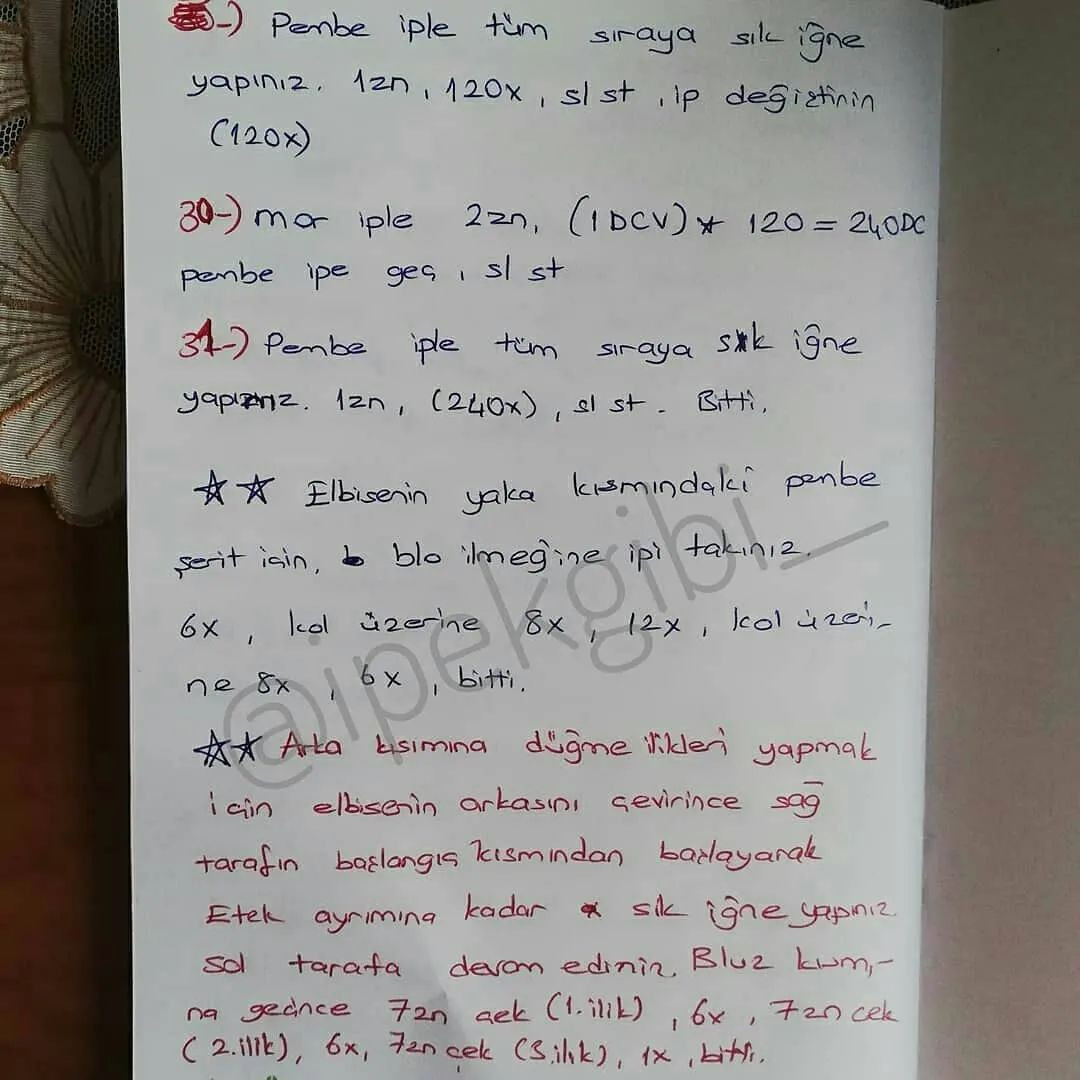 -) Pembe iple tüm sıraya sık iğne
yapınız. 1zn, 120x, sl st, ip değiştirin
(120x)
30-) mor iple 2zn, (1DCV)* 120 = 240DC
pembe ipe geç, sl st
31-) Pembe iple tüm sıraya sık iğne
yapınız. 1zn, (240x), sl st. Bitti.
☆☆ Elbisenin yaka kısmındaki pembe
şerit için, blo ilmeğine ipi takınız.
6x, kol üzerine 8x, 12x, kol üzeri-
ne 8x, 6x, bitti.
@ipekgibi_
☆☆ Arka kısımına düğme ilikleri yapmak
için elbisenin arkasını çevirince sağ
tarafın başlangıç kısmından başlayarak
Etek ayrımına kadar * sık iğne yapınız
sol tarafa devam ediniz. Bluz kısmı-
na geçince 7zn çek (1.ilik), 6x, 7zn çek
(2.ilik), 6x, 7zn çek (3.ilik), 1x, bitti.